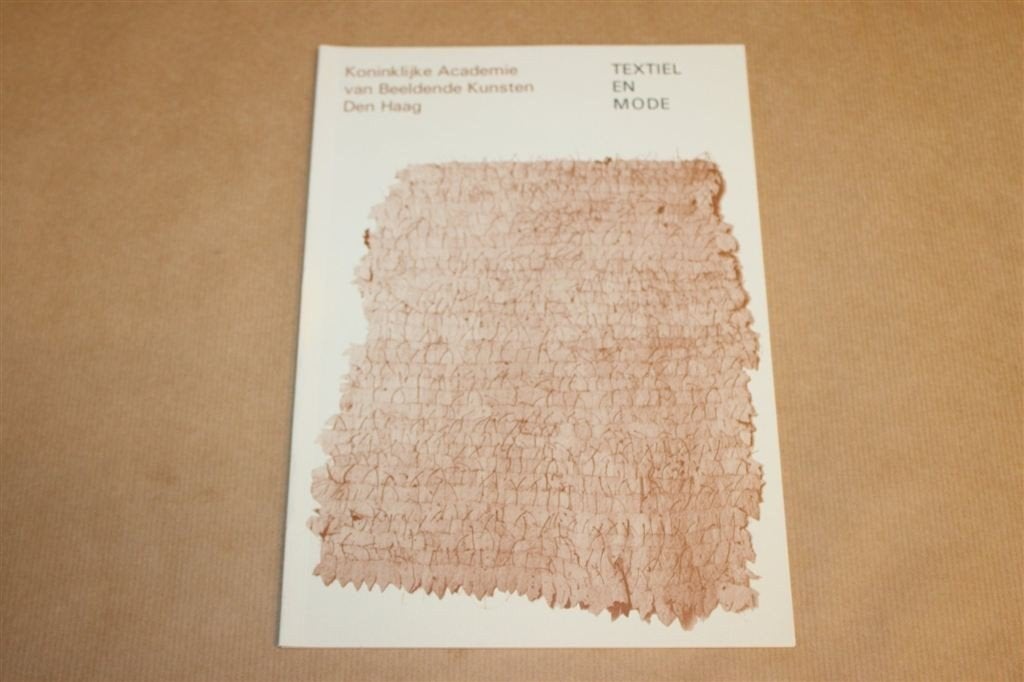 Koninklijke Academie
van Beeldende Kunsten
Den Haag
TEXTIEL
EN
MODE